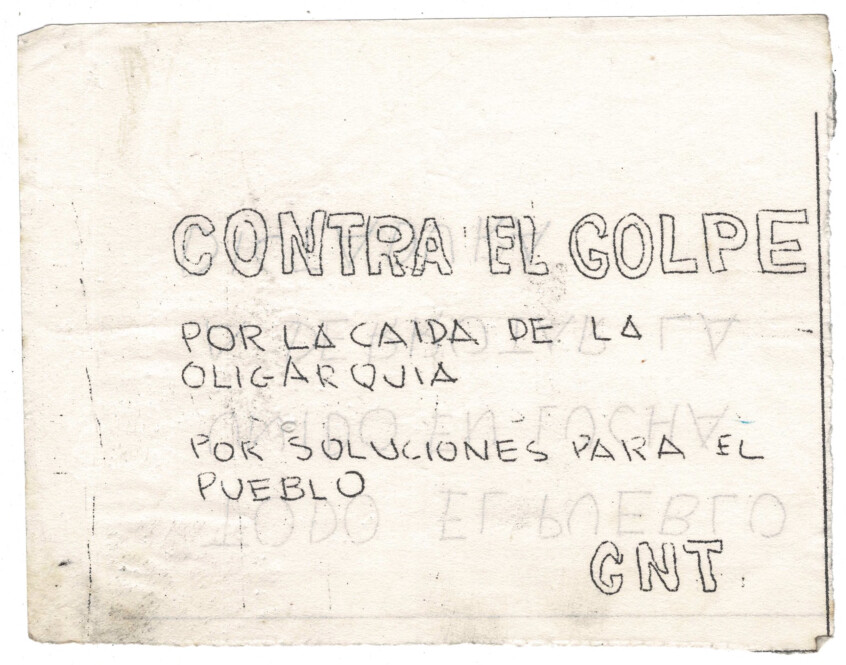 CONTRA EL GOLPE
POR LA CAIDA DE LA
OLIGARQUIA
POR SOLUCIONES PARA EL
PUEBLO
CNT